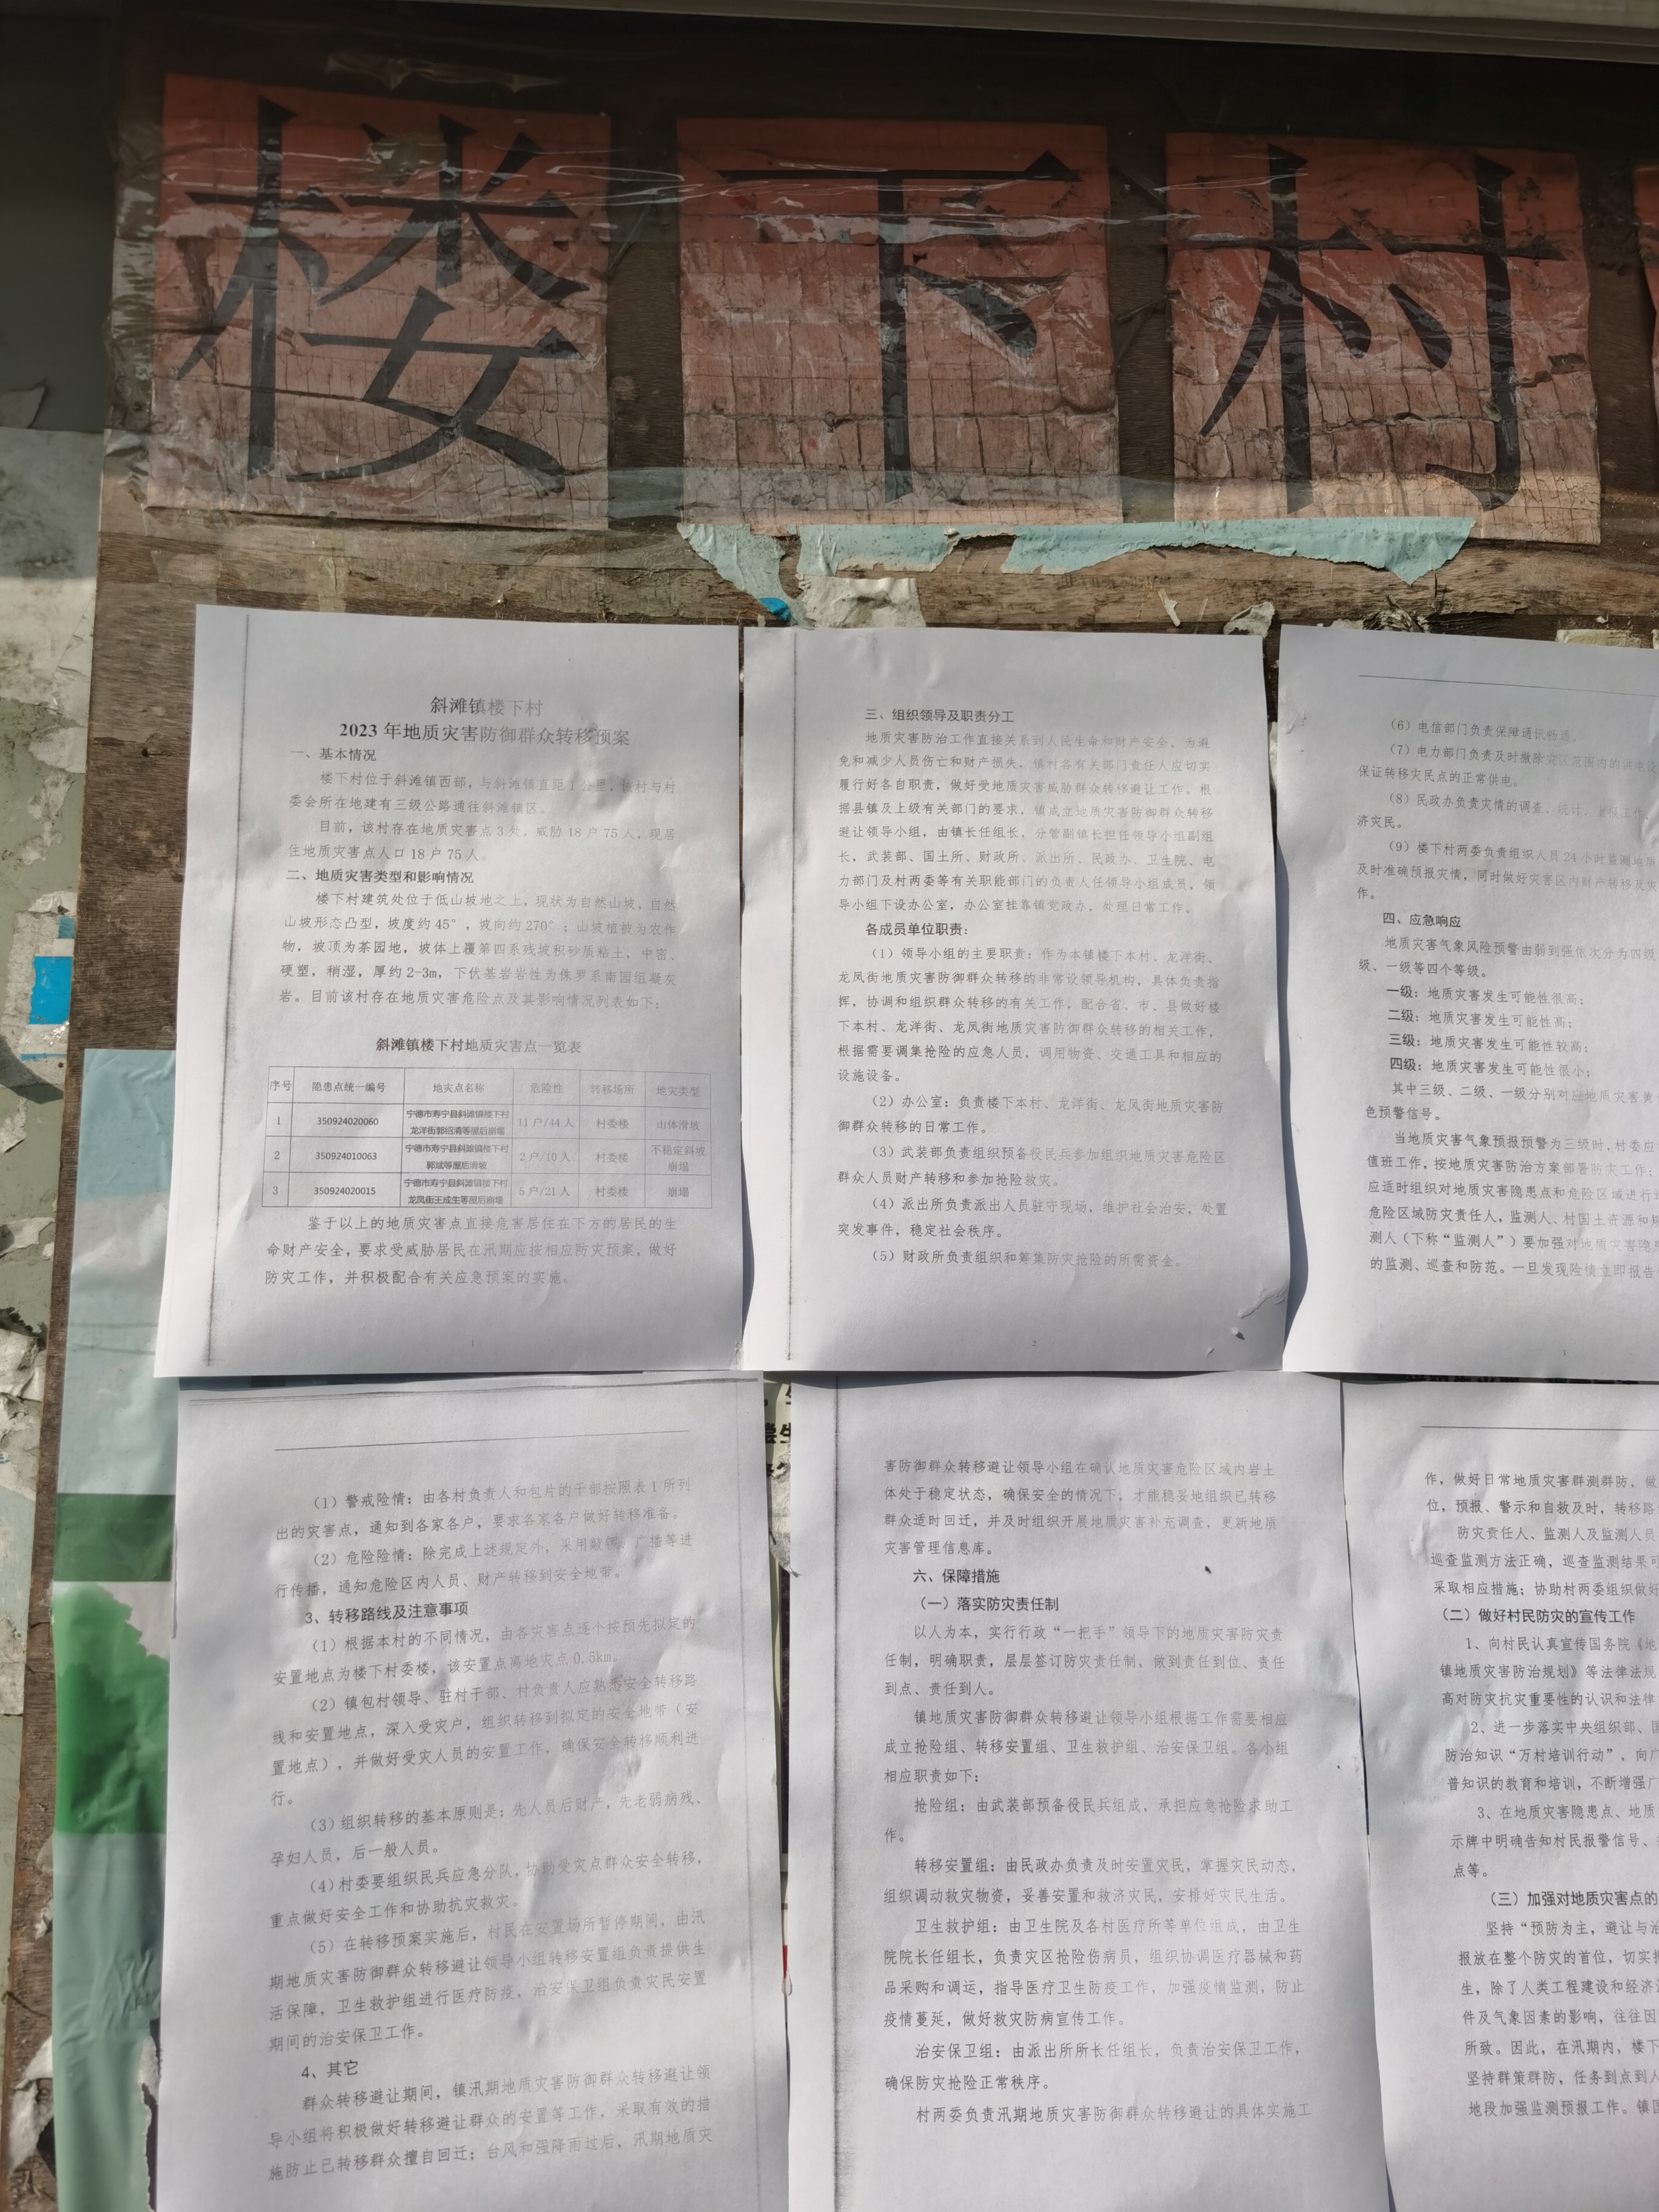 楼下村
斜滩镇楼下村
2023年地质灾害防御群众转移预案
一、基本情况
楼下村位于斜滩镇西部，与斜滩镇直距1公里，该村与村
委会所在地建有三级公路通往斜滩镇区。
目前，该村存在地质灾害点3处，威胁18户75人，现居
住地质灾害点人口18户75人。
二、地质灾害类型和影响情况
楼下村建筑处位于低山坡地之上，现状为自然山坡，自然
山坡形态凸型，坡度约45°，坡向约270°；山坡植被为农作
物，坡顶为茶园地，坡体上覆第四系残坡积砂质粘土，中密、
硬塑，稍湿，厚约2-3m，下伏基岩岩性为侏罗系南园组凝灰
岩。目前该村存在地质灾害危险点及其影响情况列表如下：
斜滩镇楼下村地质灾害点一览表
序号 隐患点统一编号 地灾点名称 危险性 转移场所 地灾类型
1 350924020060 宁德市寿宁县斜滩镇楼下村龙洋街郭绍清等屋后崩塌 11户/44人 村委楼 山体滑坡
2 350924010063 宁德市寿宁县斜滩镇楼下村郭斌等屋后滑坡 2户/10人 村委楼 不稳定斜坡崩塌
3 350924020015 宁德市寿宁县斜滩镇楼下村龙凤街王成生等屋后崩塌 5户/21人 村委楼 崩塌
鉴于以上的地质灾害点直接危害居住在下方的居民的生
命财产安全，要求受威胁居民在汛期应按相应防灾预案，做好
防灾工作，并积极配合有关应急预案的实施。
1
三、组织领导及职责分工
地质灾害防治工作直接关系到人民生命和财产安全，为避
免和减少人员伤亡和财产损失，镇村各有关部门责任人应切实
履行好各自职责，做好受地质灾害威胁群众转移避让工作。根
据县镇及上级有关部门的要求，镇成立地质灾害防御群众转移
避让领导小组，由镇长任组长，分管副镇长担任领导小组副组
长，武装部、国土所、财政所、派出所、民政办、卫生院、电
力部门及村两委等有关职能部门的负责人任领导小组成员，领
导小组下设办公室，办公室挂靠镇党政办，处理日常工作。
各成员单位职责：
（1）领导小组的主要职责：作为本镇楼下本村、龙洋街、
龙凤街地质灾害防御群众转移的非常设领导机构，具体负责指
挥，协调和组织群众转移的有关工作，配合省、市、县做好楼
下本村、龙洋街、龙凤街地质灾害防御群众转移的相关工作，
根据需要调集抢险的应急人员，调用物资、交通工具和相应的
设施设备。
（2）办公室：负责楼下本村、龙洋街、龙凤街地质灾害防
御群众转移的日常工作。
（3）武装部负责组织预备役民兵参加组织地质灾害危险区
群众人员财产转移和参加抢险救灾。
（4）派出所负责派出人员驻守现场，维护社会治安，处置
突发事件，稳定社会秩序。
（5）财政所负责组织和筹集防灾抢险的所需资金。
2
（6）电信部门负责保障通讯畅通。
（7）电力部门负责及时撤除灾区范围内的供电设
保证转移灾民点的正常供电。
（8）民政办负责灾情的调查、统计、上报工作，
济灾民。
（9）楼下村两委负责组织人员24小时监测地质
及时准确预报灾情，同时做好灾害区内财产转移及灾
作。
四、应急响应
地质灾害气象风险预警由弱到强依次分为四级
级、一级等四个等级。
一级：地质灾害发生可能性很高；
二级：地质灾害发生可能性高；
三级：地质灾害发生可能性较高；
四级：地质灾害发生可能性很小；
其中三级、二级、一级分别对应地质灾害黄
色预警信号。
当地质灾害气象预报预警为三级时，村委应
值班工作，按地质灾害防治方案部署防灾工作；
应适时组织对地质灾害隐患点和危险区域进行
危险区域防灾责任人，监测人、村国土资源和
测人（下称“监测人”）要加强对地质灾害隐
的监测、巡查和防范。一旦发现险情立即报告
3
（1）警戒险情：由各村负责人和包片的干部按照表1所列
出的灾害点，通知到各家各户，要求各家各户做好转移准备。
（2）危险险情：除完成上述规定外，采用敲锣、广播等进
行传播，通知危险区内人员、财产转移到安全地带。
3、转移路线及注意事项
（1）根据本村的不同情况，由各灾害点逐个按预先拟定的
安置地点为楼下村委楼，该安置点离地灾点0.5km。
（2）镇包村领导、驻村干部、村负责人应熟悉安全转移路
线和安置地点，深入受灾户，组织转移到拟定的安全地带（安
置地点），并做好受灾人员的安置工作，确保安全转移顺利进
行。
（3）组织转移的基本原则是：先人员后财产，先老弱病残、
孕妇人员，后一般人员。
（4）村委要组织民兵应急分队，协助受灾点群众安全转移，
重点做好安全工作和协助抗灾救灾。
（5）在转移预案实施后，村民在安置场所暂停期间，由汛
期地质灾害防御群众转移避让领导小组转移安置组负责提供生
活保障，卫生救护组进行医疗防疫，治安保卫组负责灾民安置
期间的治安保卫工作。
4、其它
群众转移避让期间，镇汛期地质灾害防御群众转移避让领
导小组将积极做好转移避让群众的安置等工作，采取有效的措
施防止已转移群众擅自回迁；台风和强降雨过后，汛期地质灾
害防御群众转移避让领导小组在确认地质灾害危险区域内岩土
体处于稳定状态，确保安全的情况下，才能稳妥地组织已转移
群众适时回迁，并及时组织开展地质灾害补充调查，更新地质
灾害管理信息库。
六、保障措施
（一）落实防灾责任制
以人为本，实行行政“一把手”领导下的地质灾害防灾责
任制，明确职责，层层签订防灾责任制，做到责任到位、责任
到点、责任到人。
镇地质灾害防御群众转移避让领导小组根据工作需要相应
成立抢险组、转移安置组、卫生救护组、治安保卫组。各小组
相应职责如下：
抢险组：由武装部预备役民兵组成，承担应急抢险求助工
作。
转移安置组：由民政办负责及时安置灾民，掌握灾民动态，
组织调动救灾物资，妥善安置和救济灾民，安排好灾民生活。
卫生救护组：由卫生院及各村医疗所等单位组成，由卫生
院院长任组长，负责灾区抢险伤病员，组织协调医疗器械和药
品采购和调运，指导医疗卫生防疫工作，加强疫情监测，防止
疫情蔓延，做好救灾防病宣传工作。
治安保卫组：由派出所所长任组长，负责治安保卫工作，
确保防灾抢险正常秩序。
村两委负责汛期地质灾害防御群众转移避让的具体实施工
作，做好日常地质灾害群测群防，做
位，预报、警示和自救及时，转移路
防灾责任人、监测人及监测人员
巡查监测方法正确，巡查监测结果可
采取相应措施；协助村两委组织做好
（二）做好村民防灾的宣传工作
1、向村民认真宣传国务院《地
镇地质灾害防治规划》等法律法规
高对防灾抗灾重要性的认识和法律
2、进一步落实中央组织部、国
防治知识“万村培训行动”，向广
普知识的教育和培训，不断增强广
3、在地质灾害隐患点、地质
示牌中明确告知村民报警信号、
点等。
（三）加强对地质灾害点的
坚持“预防为主，避让与治
报放在整个防灾的首位，切实
生，除了人类工程建设和经济
件及气象因素的影响，往往因
所致。因此，在汛期内，楼下
坚持群策群防，任务到点到人
地段加强监测预报工作。镇国